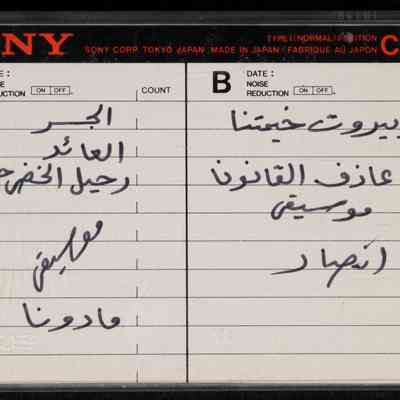 NY
TYPE I (NORMAL) POSITION
SONY CORP. TOKYO JAPAN MADE IN JAPAN / FABRIQUE AU JAPON
C
E :
SE
UCTION ON OFF.
COUNT
B
DATE :
NOISE
REDUCTION ON OFF.
الجسر
العائد
رحيل الخضر
موسيقى
مادونا
بيروت خيمتنا
عازف القانون
موسيقى
انتصار